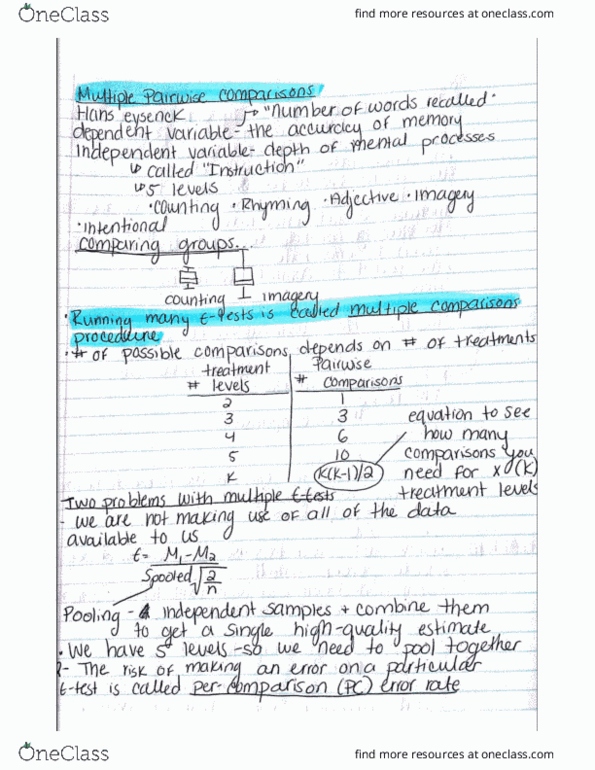 OneClass
find more resources at oneclass.com
Multiple Pairwise comparisons
Hans eysenck → "Number of words recalled"
dependent variable- the accuracy of memory
Independent variable- depth of mental processes
↳ called "Instruction"
↳ 5 levels
• counting • Rhyming • Adjective • Imagery
• Intentional
comparing groups...
counting imagery
• Running many t-tests is called multiple comparisons
procedure
• # of possible comparisons depends on # of treatments
treatment Pairwise
# levels # comparisons
2 1
3 3 equation to see
4 6 how many
5 10 comparisons you
K K(K-1)/2 need for x (K)
treatment levels
Two problems with multiple t-tests
- we are not making use of all of the data
available to us
t = M₁-M₂
Spooled √2/n
Pooling - independent samples + combine them
to get a single high-quality estimate
• We have 5 levels -so we need to pool together
2- The risk of making an error on a particular
t-test is called per-comparison (PC) error rate
OneClass
find more resources at oneclass.com